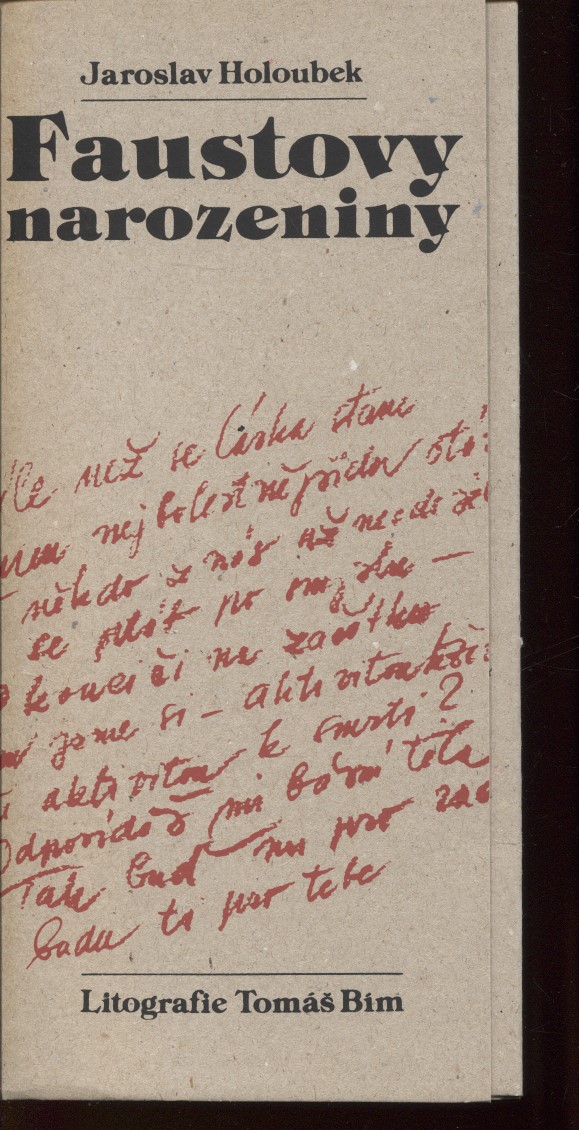 Jaroslav Holoubek
Faustovy
narozeniny
než se láska stane
nejbolestnější
někdo z nás až
se ptát po smyslu —
konci či na začátku
jsme si – aktivitou
aktivitou k smrti?
Odpovídáš mi barvou těla
Tak buď mi pro
budu tu pro tebe
Litografie Tomáš Bím